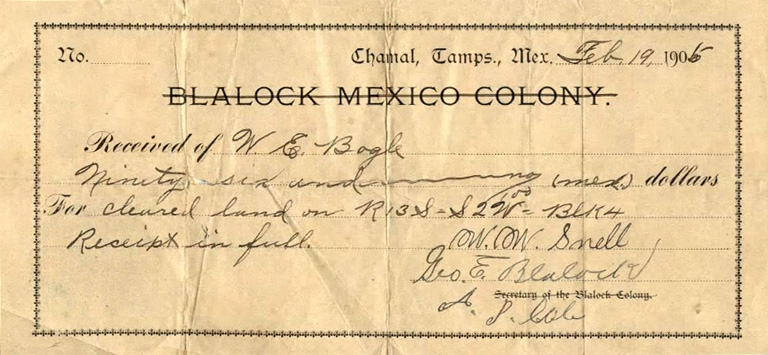 No. Chamal, Tamps., Mex. Feb. 19, 1905
BLALOCK MEXICO COLONY.
Received of W. E. Bogle
Ninety six and no (mex) dollars
For cleared land on R13S = S2W = Blk 4
Receipt in full.
W. W. Snell
Geo. E. Blalock
Secretary of the Blalock Colony.